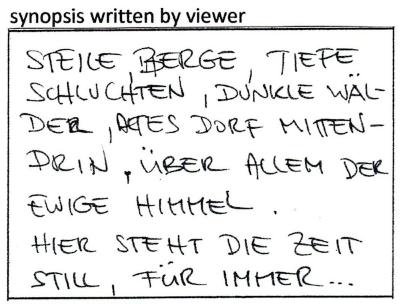 synopsis written by viewer
STEILE, BERGE, TIEFE
SCHLUCHTEN, DUNKLE WÄL-
DER, ALTES DORF MITTEN-
DRIN, ÜBER ALLEM DER
EWIGE HIMMEL.
HIER STEHT DIE ZEIT
STILL, FÜR IMMER...